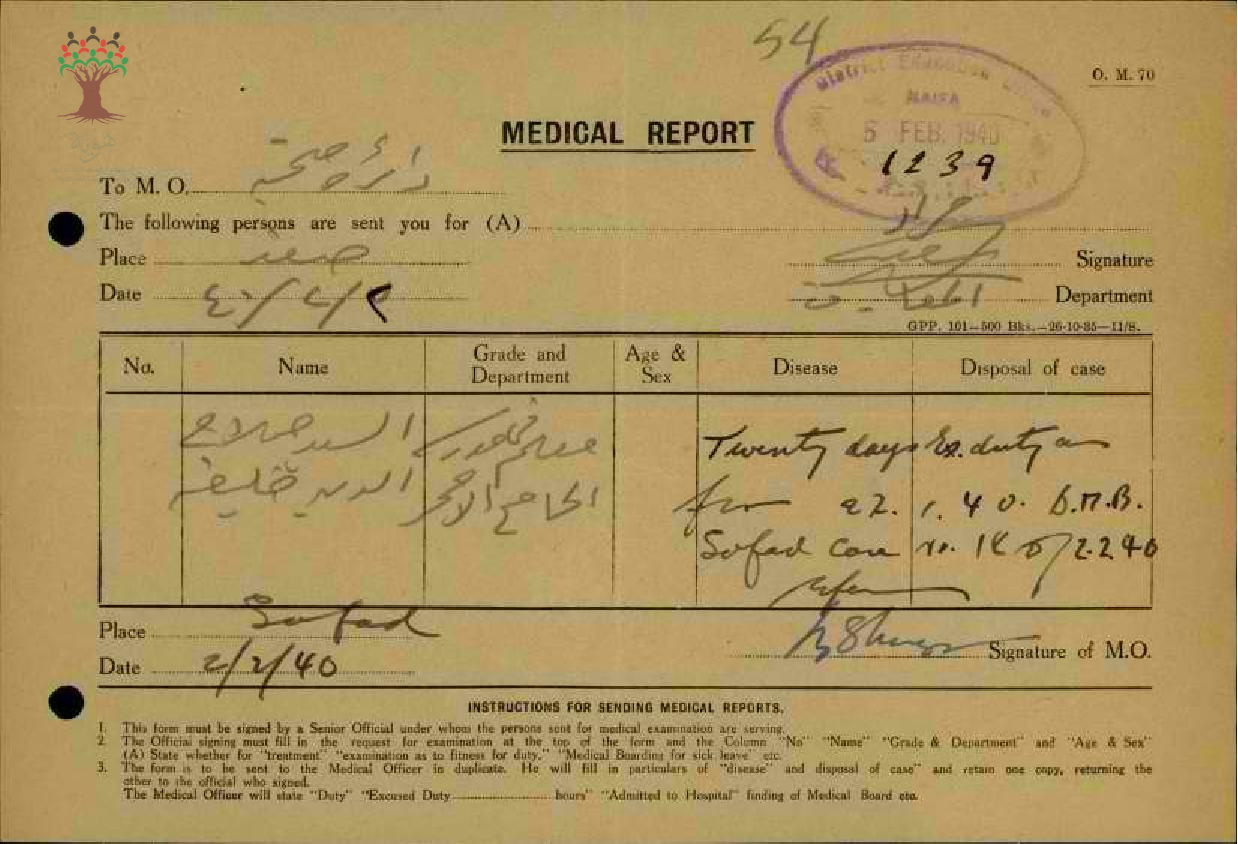 54
O. M. 70
District Education Office
HAIFA
5 FEB. 1940
1239
MEDICAL REPORT
To M. O. دائرة صحة
The following persons are sent you for (A)
Place صفد
Signature
Date ٢/٢/٤٠
المعارف Department
GPP. 101—500 Bks.—26-10-35—11/8.
No. Name Grade and Department Age & Sex Disease Disposal of case
السيد صلاح
الدين خليفة
الجامع الاحمر
Twenty days Ex. duty as
from 22. 1. 40. D.M.B.
Safad Case No. 18 of 2.2.40
refers
Place Safad
Date 2/2/40
Signature of M.O.
INSTRUCTIONS FOR SENDING MEDICAL REPORTS.
1. This form must be signed by a Senior Official under whom the persons sent for medical examination are serving.
2. The Official signing must fill in the request for examination at the top of the form and the Column "No" "Name" "Grade & Department" and "Age & Sex"
(A) State whether for "treatment" "examination as to fitness for duty," "Medical Boarding for sick leave" etc.
3. The form is to be sent to the Medical Officer in duplicate. He will fill in particulars of "disease" and disposal of case" and retain one copy, returning the
other to the official who signed.
The Medical Officer will state "Duty" "Excused Duty hours" "Admitted to Hospital" finding of Medical Board etc.